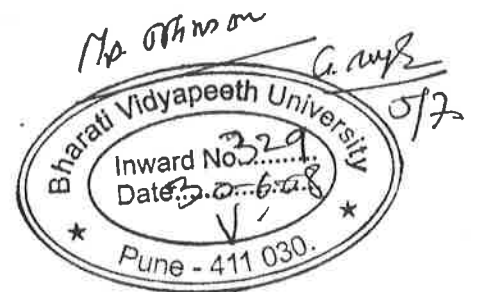 5/7
Bharati Vidyapeeth University
Inward No 329
Date 30-6-08
★ Pune - 411 030. ★